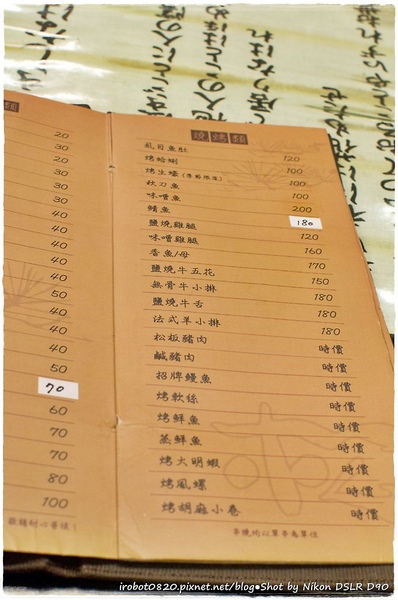 類
20
30
20
30
30
40
40
40
40
50
40
40
40
50
70
60
70
70
80
100
燒烤類
虱目魚肚 120
烤蛤蜊 100
烤生蠔(季節限定) 100
秋刀魚 100
味噌魚 200
鯖魚 180
鹽燒雞腿 120
味噌雞腿 160
香魚/母 170
鹽燒牛五花 150
無骨牛小排 180
鹽燒牛舌 180
法式羊小排 180
松板豬肉 時價
鹹豬肉 時價
招牌鰻魚 時價
烤軟絲 時價
烤鮮魚 時價
蒸鮮魚 時價
烤大明蝦 時價
烤鳳螺 時價
烤胡麻小卷 時價
串燒均以單串為單位
irobot0820.pixnet.net/blog•Shot by Nikon DSLR D90